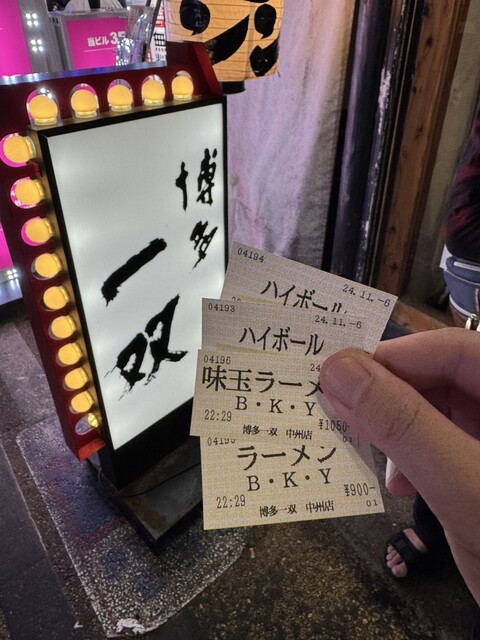 当ビル3
博多
一双
04194
24.11.-6
ハイボール
04193
24.11.-6
ハイボール
04196
24
味玉ラーメ
B・K・Y
22:29
¥1050-
博多一双 中州店
01
ラーメン
B・K・Y
22:29
¥900-
博多一双 中州店
01